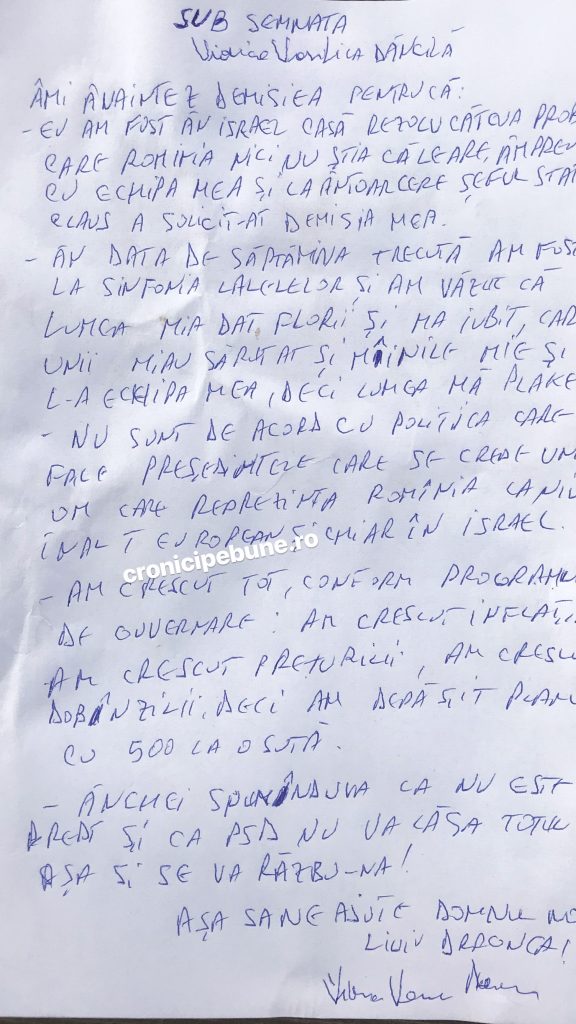 SUB SEMNATA
Viorica Vasilica DĂNCILĂ
ÂMI ÂNAINTEZ DEMISIEA PENTRUCĂ:
- EU AM FOST ÂN ISRAEL CASĂ REZOLV CÂTEVA PROB
CARE ROMINIA NICI NU ȘTIA CĂLEARE, ÂMPREU
CU ECHIPA MEA ȘI LA ÂNTOARCERE ȘEFUL STAT
CLAUS A SOLICIT-AT DEMISIA MEA.
- ÂN DATA DE SĂPTĂMINA TRECUTĂ AM FOST
LA SINFONIA LALELELOR ȘI AM VĂZUT CĂ
LUMEA MIA DAT FLORII ȘI MA IUBIT, CAR
UNII MIAU SĂRUTAT ȘI MÎINILE MIE ȘI
L-A ECHIPA MEA, DECI LUMEA MĂ PLAKE
- NU SUNT DE ACORD CU POLITICA CARE
FACE PREȘEDINTELE CARE SE CREDE UN
OM CARE REPREZINTA ROMÂNIA LA NIV
ÎNALT EUROPEAN ȘI CHIAR ÎN ISRAEL.
cronicipebune.ro
- AM CRESCUT TOT, CONFORM PROGRAMU
DE GUVERNARE: AM CRESCUT INFLAȚI
AM CRESCUT PREȚURILII, AM CRESCU
DOBÎNZILII, DECI AM DEPĂȘIT PLANU
CU 500 LA O SUTĂ.
- ÂNCHEI SPUNÎNDUVA CA NU ESTE
DREPT ȘI CA PSD NU VA LĂSA TOTUL
AȘA ȘI SE VA RĂZBU-NA!
AȘA SANE AJUTE DOMNUL NO
LIVIU DRAGNEA!